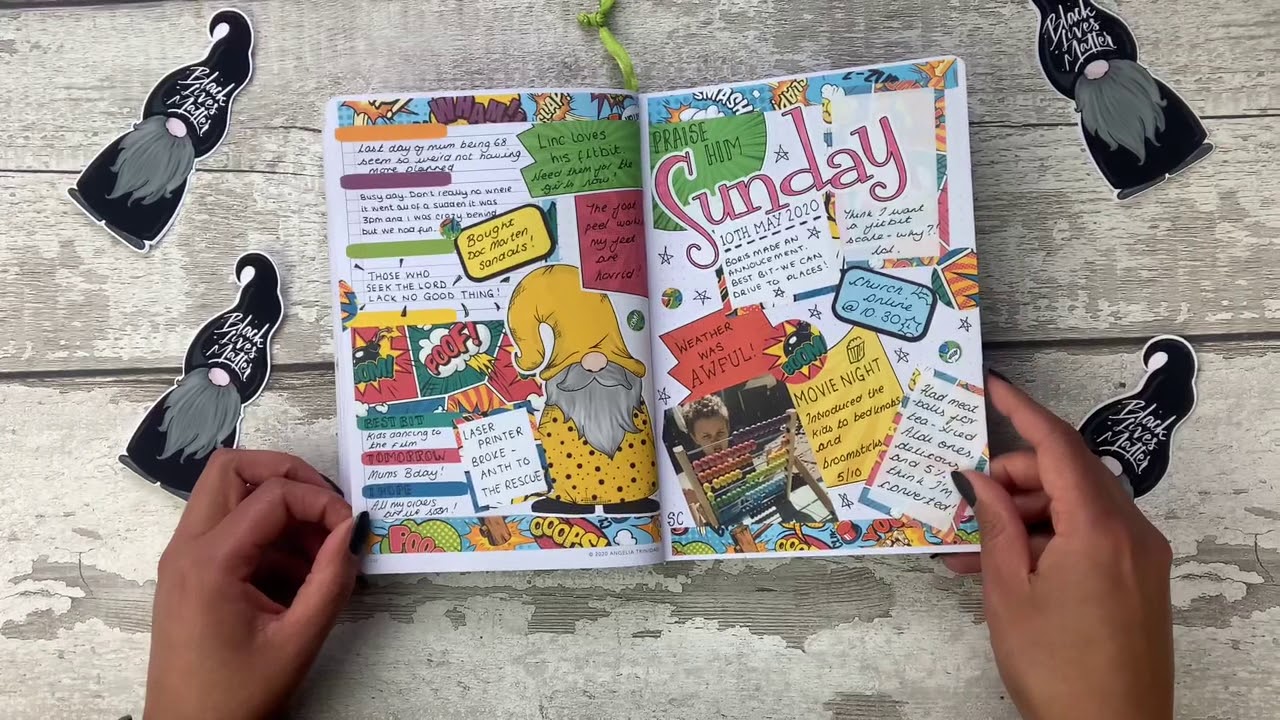 Black
Lives
Matter
Black
Lives
Matter
Black
Lives
Matter
Black
Lives
Matter
WHAM!
Last day of mum being 68
seem so weird not having
more planned
Busy day. Don't really no where
it went all of a sudden it was
3pm and i was crazy behind
but we had fun.
THOSE WHO
SEEK THE LORD
LACK NO GOOD THING!
Linc loves
his fitbit
need them for the
girls now!
Bought
Doc Marten
sandals!
The foot
peel work
my feet
are
horrid!
POOF!
BEST BIT
Kids dancing to
the film
TOMORROW
Mums Bday!
I HOPE
All my orders
arrive soon!
LASER
PRINTER
BROKE -
ANTH TO
THE RESCUE
OOOPS!
© 2020 ANGELIA TRINIDAD
SMASH
PRAISE
HIM
Sunday
10TH MAY 2020
BORIS MADE AN
ANNOUNCEMENT.
BEST BIT - WE CAN
DRIVE TO PLACES!
Think I want
a fitbit
scale - why?!
lol.
Church
online
@ 10:30
WEATHER
WAS
AWFUL!
BOOM!
MOVIE NIGHT
Introduced the
kids to bedknobs
and
broomsticks
5/10
Had meat
-balls for
tea. Used
Aldi ones
delicious
and 5
think I'm
converted!
SC